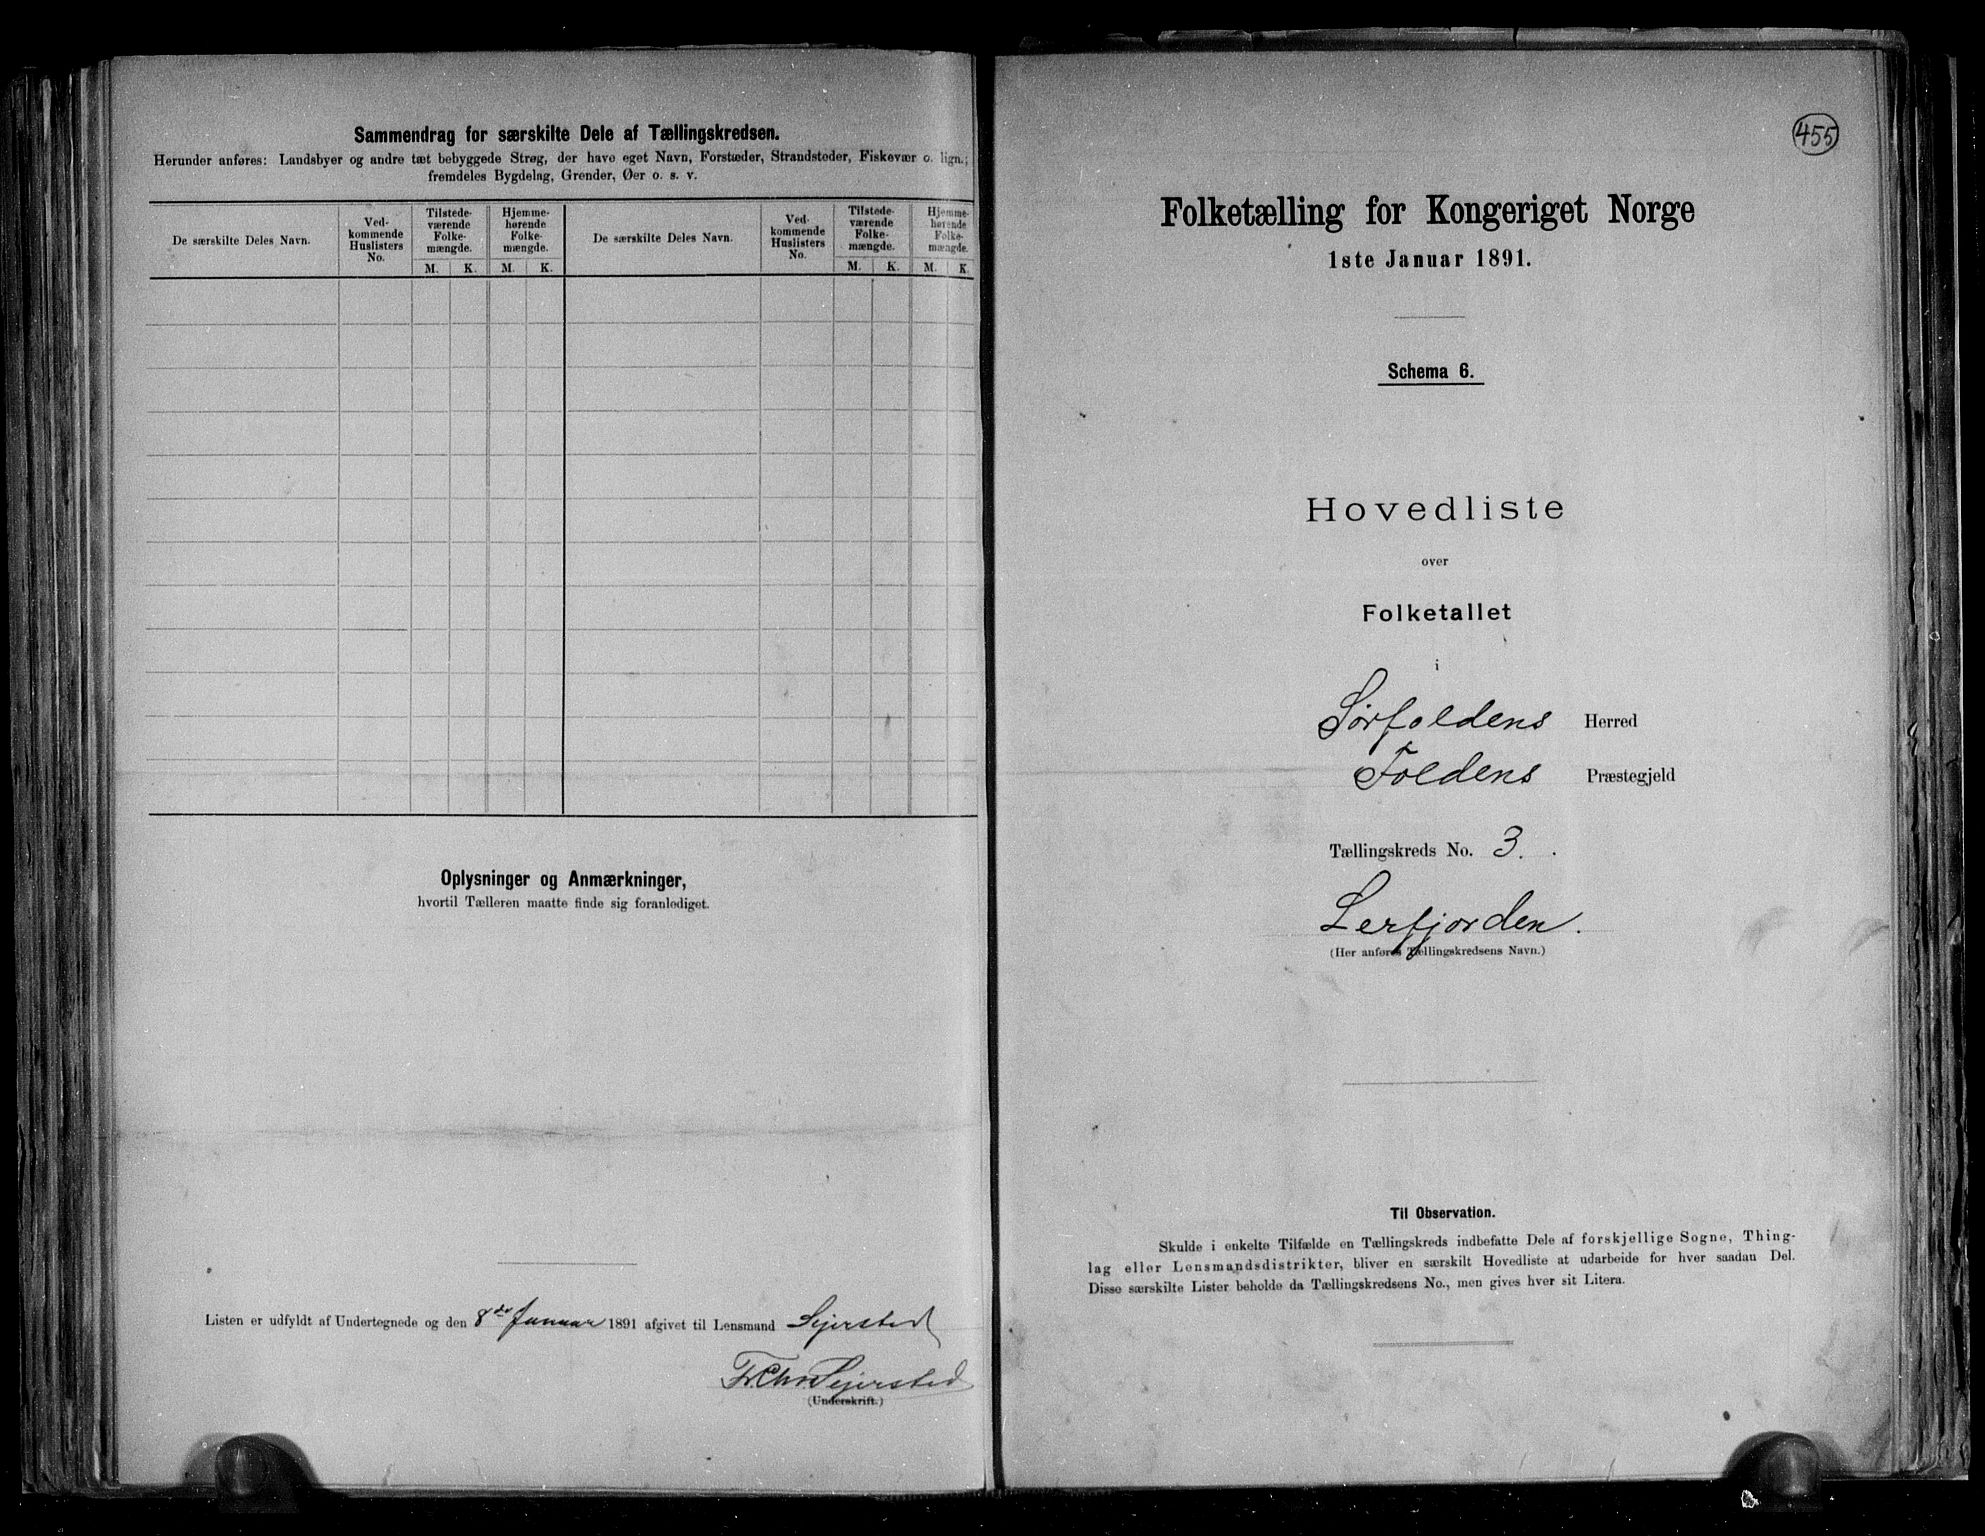 Sammendrag for særskilte Dele af Tællingskredsen.
Herunder anføres: Landsbyer og andre tæt bebyggede Strøg, der have eget Navn, Forstæder, Strandsteder, Fiskevær o. lign.;
fremdeles Bygdelag, Grender, Øer o. s. v.
De særskilte Deles Navn.
Ved-
kommende
Huslisters
No.
Tilstede-
værende
Folke-
mængde.
M. K.
Hjemme-
hørende
Folke-
mængde.
M. K.
De særskilte Deles Navn.
Ved-
kommende
Huslisters
No.
Tilstede-
værende
Folke-
mængde.
M. K.
Hjemme-
hørende
Folke-
mængde.
M. K.
Oplysninger og Anmærkninger,
hvortil Tælleren maatte finde sig foranlediget.
Listen er udfyldt af Undertegnede og den 8de Januar 1891 afgivet til Lensmand Sejersted
Fr. Chr. Sejersted
(Underskrift.)
455
Folketælling for Kongeriget Norge
1ste Januar 1891.
Schema 6.
Hovedliste
over
Folketallet
i
Sørfoldens Herred
Foldens Præstegjeld
Tællingskreds No. 3.
Lerfjorden.
(Her anføres Tællingskredsens Navn.)
Til Observation.
Skulde i enkelte Tilfælde en Tællingskreds indbefatte Dele af forskjellige Sogne, Thing-
lag eller Lensmandsdistrikter, bliver en særskilt Hovedliste at udarbeide for hver saadan Del.
Disse særskilte Lister beholde da Tællingskredsens No., men gives hver sit Litera.